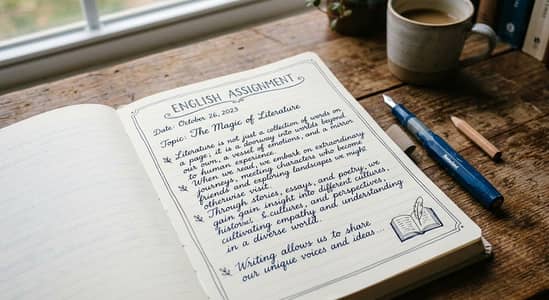 ENGLISH ASSIGNMENT
Date: October 26, 2023
Topic: The Magic of Literature
Literature is not just a collection of words on
a page; it is a doorway into worlds beyond
our own, a vessel of emotions, and a mirror
to human experience.
When we read, we embark on extraordinary
journeys, meeting characters who become
friends and exploring landscapes we might
otherwise visit.
Through stories, essays, and poetry, we
gain gain insight into different cultures,
historical & cultures, and perspectives,
cultivating empathy and understanding
in a diverse world.
Writing allows us to share
our unique voices and ideas...